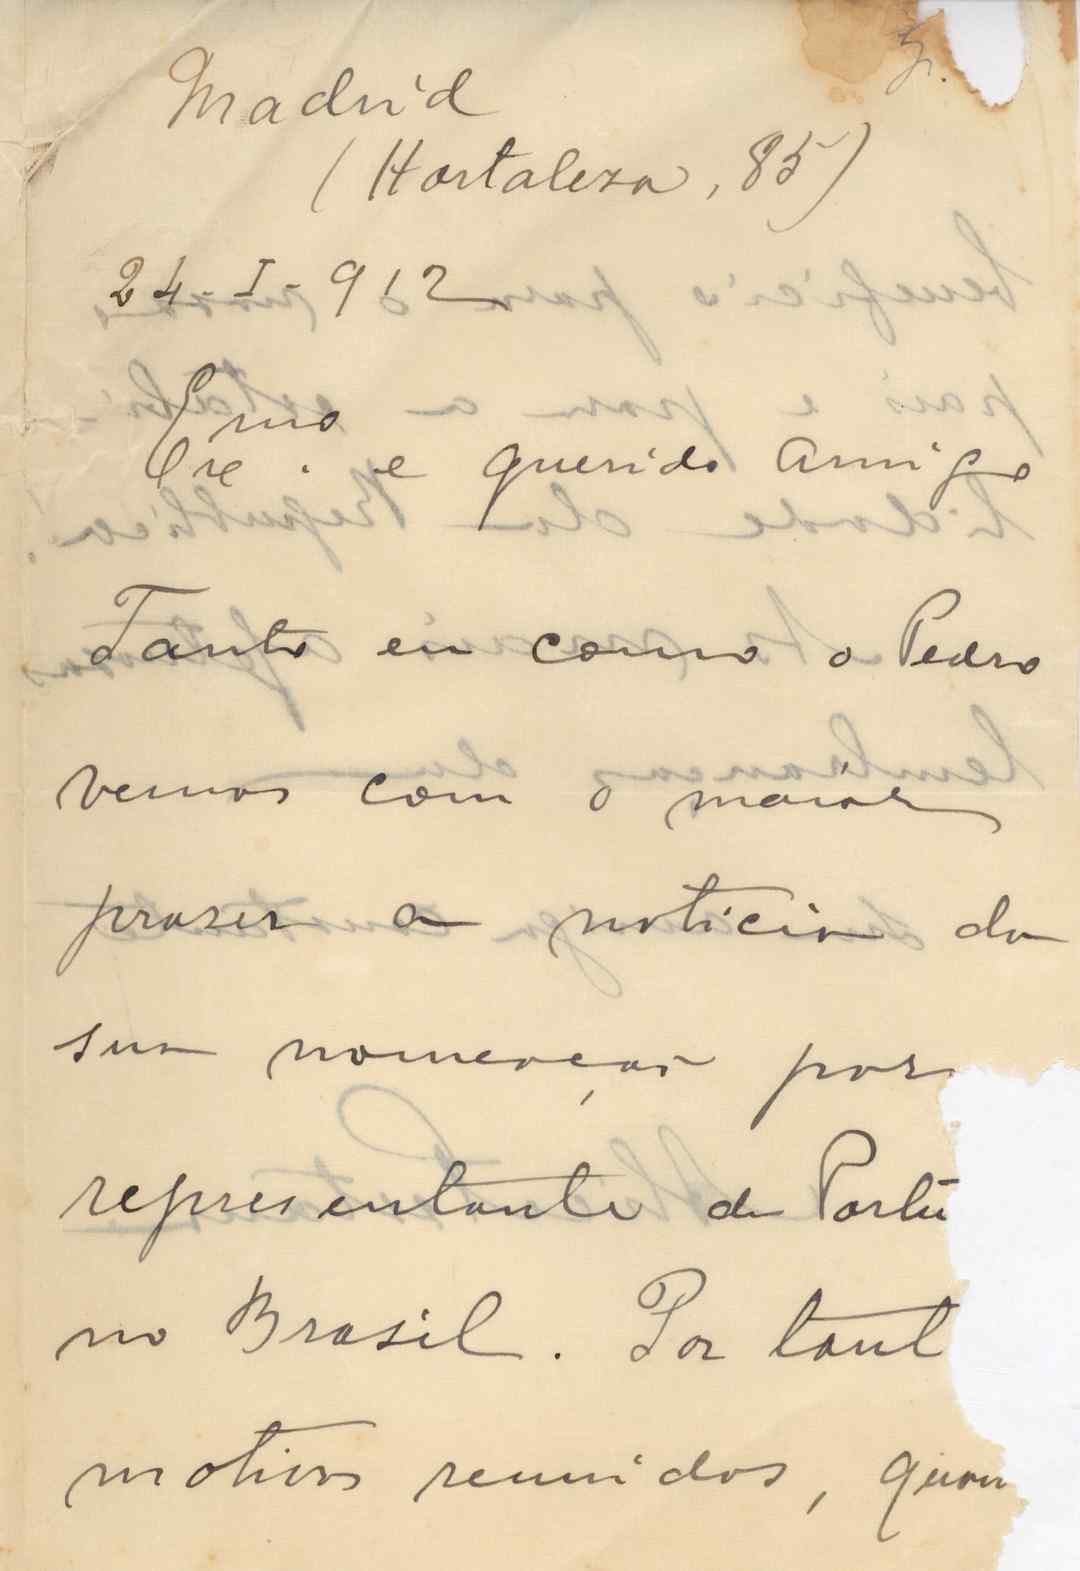 Madrid
(Hortaleza, 85)
24-I-912
Exmo. e querido Amigo
Tanto eu como o Pedro
vemos com o maior
praser a noticia da
sua nomeação por
representante de Portu
no Brasil. Por tant
motivos reunidos, quan